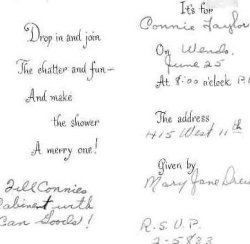 Drop in and join
The chatter and fun—
And make
the shower
A merry one!
Fill Connies
Cabinet with
Can Goods!
It's for
Connie Taylor
On Wends.
June 25
At 8:00 o'clock P.
The address
415 West 11th
Given by
Mary Jane
R.S.V.P.
2-5833